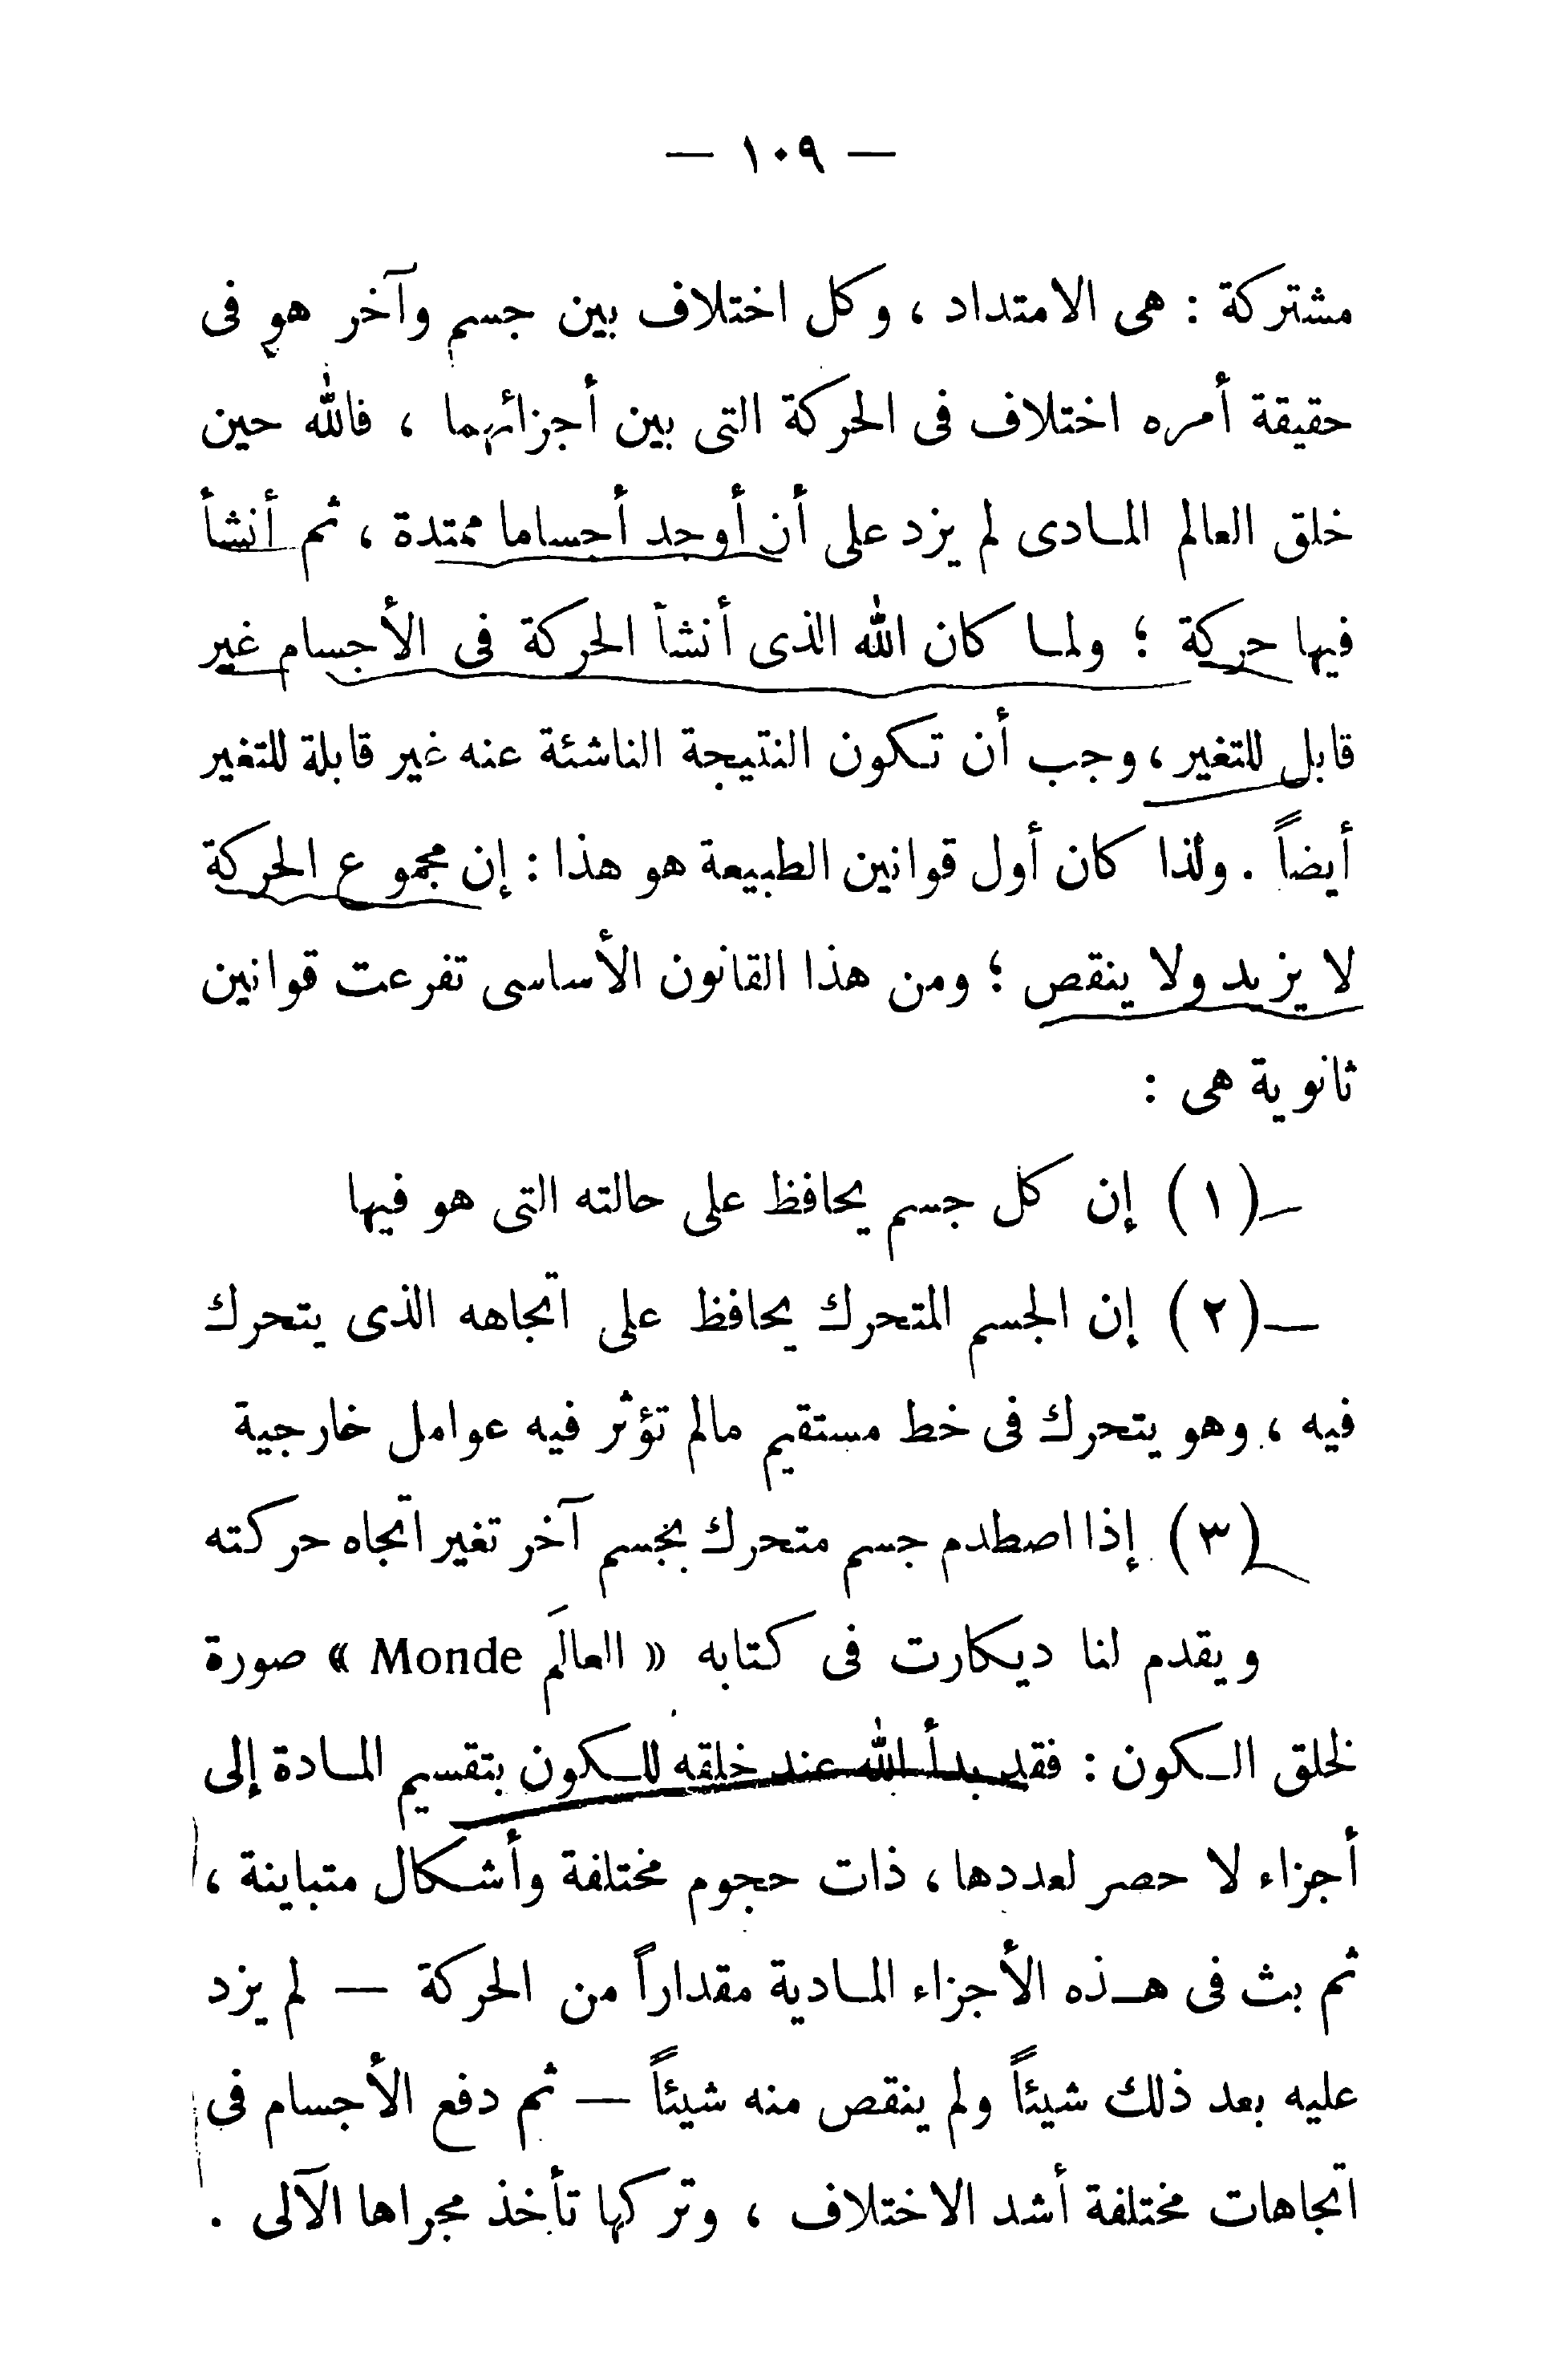 — ١٠٩ —
مشتركة : هى الامتداد ، وكل اختلاف بين جسم وآخر هو فى
حقيقة أمره اختلاف فى الحركة التى بين أجزائهما ، فالله حين
خلق العالم المادى لم يزد على أن أوجد أجساما ممتدة ، ثم أنشأ
فيها حركة ؛ ولما كان الله الذى أنشأ الحركة فى الأجسام غير
قابل للتغير ، وجب أن تكون النتيجة الناشئة عنه غير قابلة للتغير
أيضاً . ولذا كان أول قوانين الطبيعة هو هذا : إن مجموع الحركة
لا يزيد ولا ينقص ؛ ومن هذا القانون الأساسى تفرعت قوانين
ثانوية هى :
(١) إن كل جسم يحافظ على حالته التى هو فيها
(٢) إن الجسم المتحرك يحافظ على اتجاهه الذى يتحرك
فيه ، وهو يتحرك فى خط مستقيم مالم تؤثر فيه عوامل خارجية
(٣) إذا اصطدم جسم متحرك بجسم آخر تغير اتجاه حركته
ويقدم لنا ديكارت فى كتابه « العالَم Monde » صورة
لخلق الكون : فقد بدأ الله عند خلقه للكون بتقسيم المادة إلى
أجزاء لا حصر لعددها ، ذات حجوم مختلفة وأشكال متباينة ،
ثم بث فى هذه الأجزاء المادية مقداراً من الحركة — لم يزد
عليه بعد ذلك شيئاً ولم ينقص منه شيئاً — ثم دفع الأجسام فى
اتجاهات مختلفة أشد الاختلاف ، وتركها تأخذ مجراها الآلى .